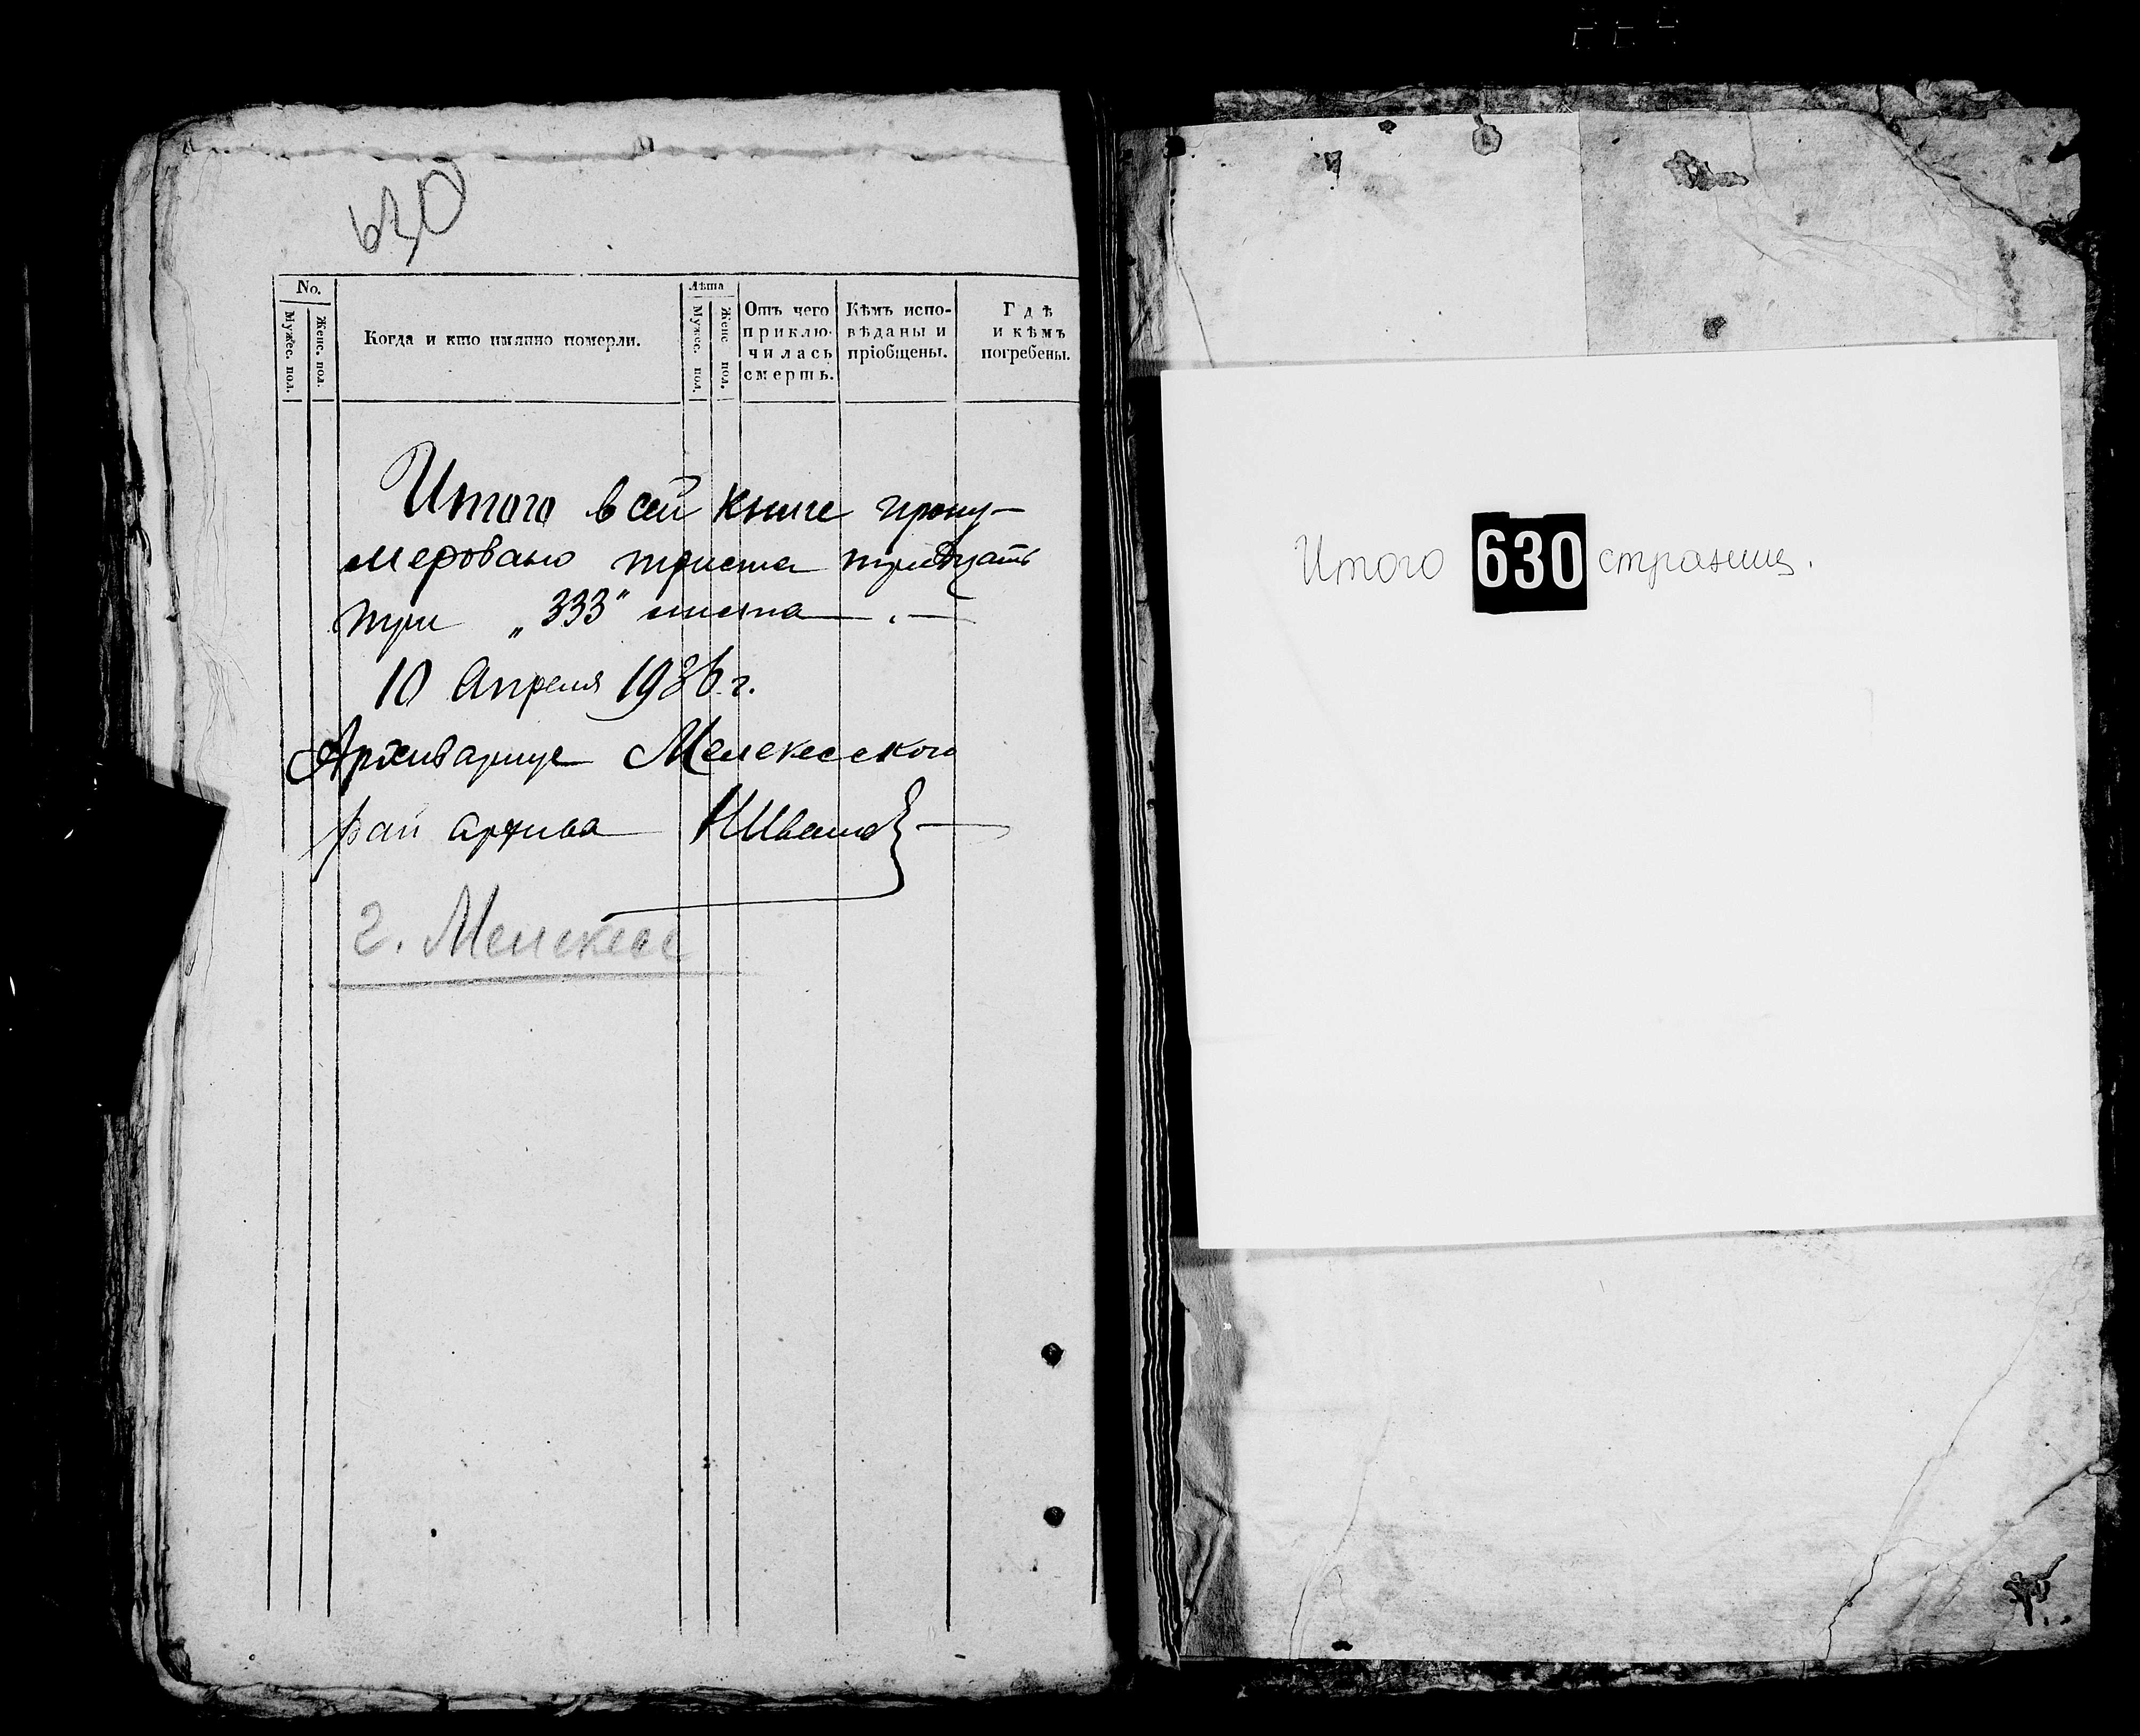 630
No.
Мужес. пол.
Женс. пол.
Когда и кто имянно померли.
Лѣта
Мужес. пол.
Женс. пол.
Отъ чего
приклю-
чилась
смерть.
Кѣмъ испо-
вѣданы и
пріобщены.
Гдѣ
и кѣмъ
погребены.
Итого в сей книге прону-
меровано триста тридцать
три „333" листа
10 Апреля 1936 г.
Архивариус Мелекесского
рай архива НИванов
г. Мелекесс
Итого 630 страниц.